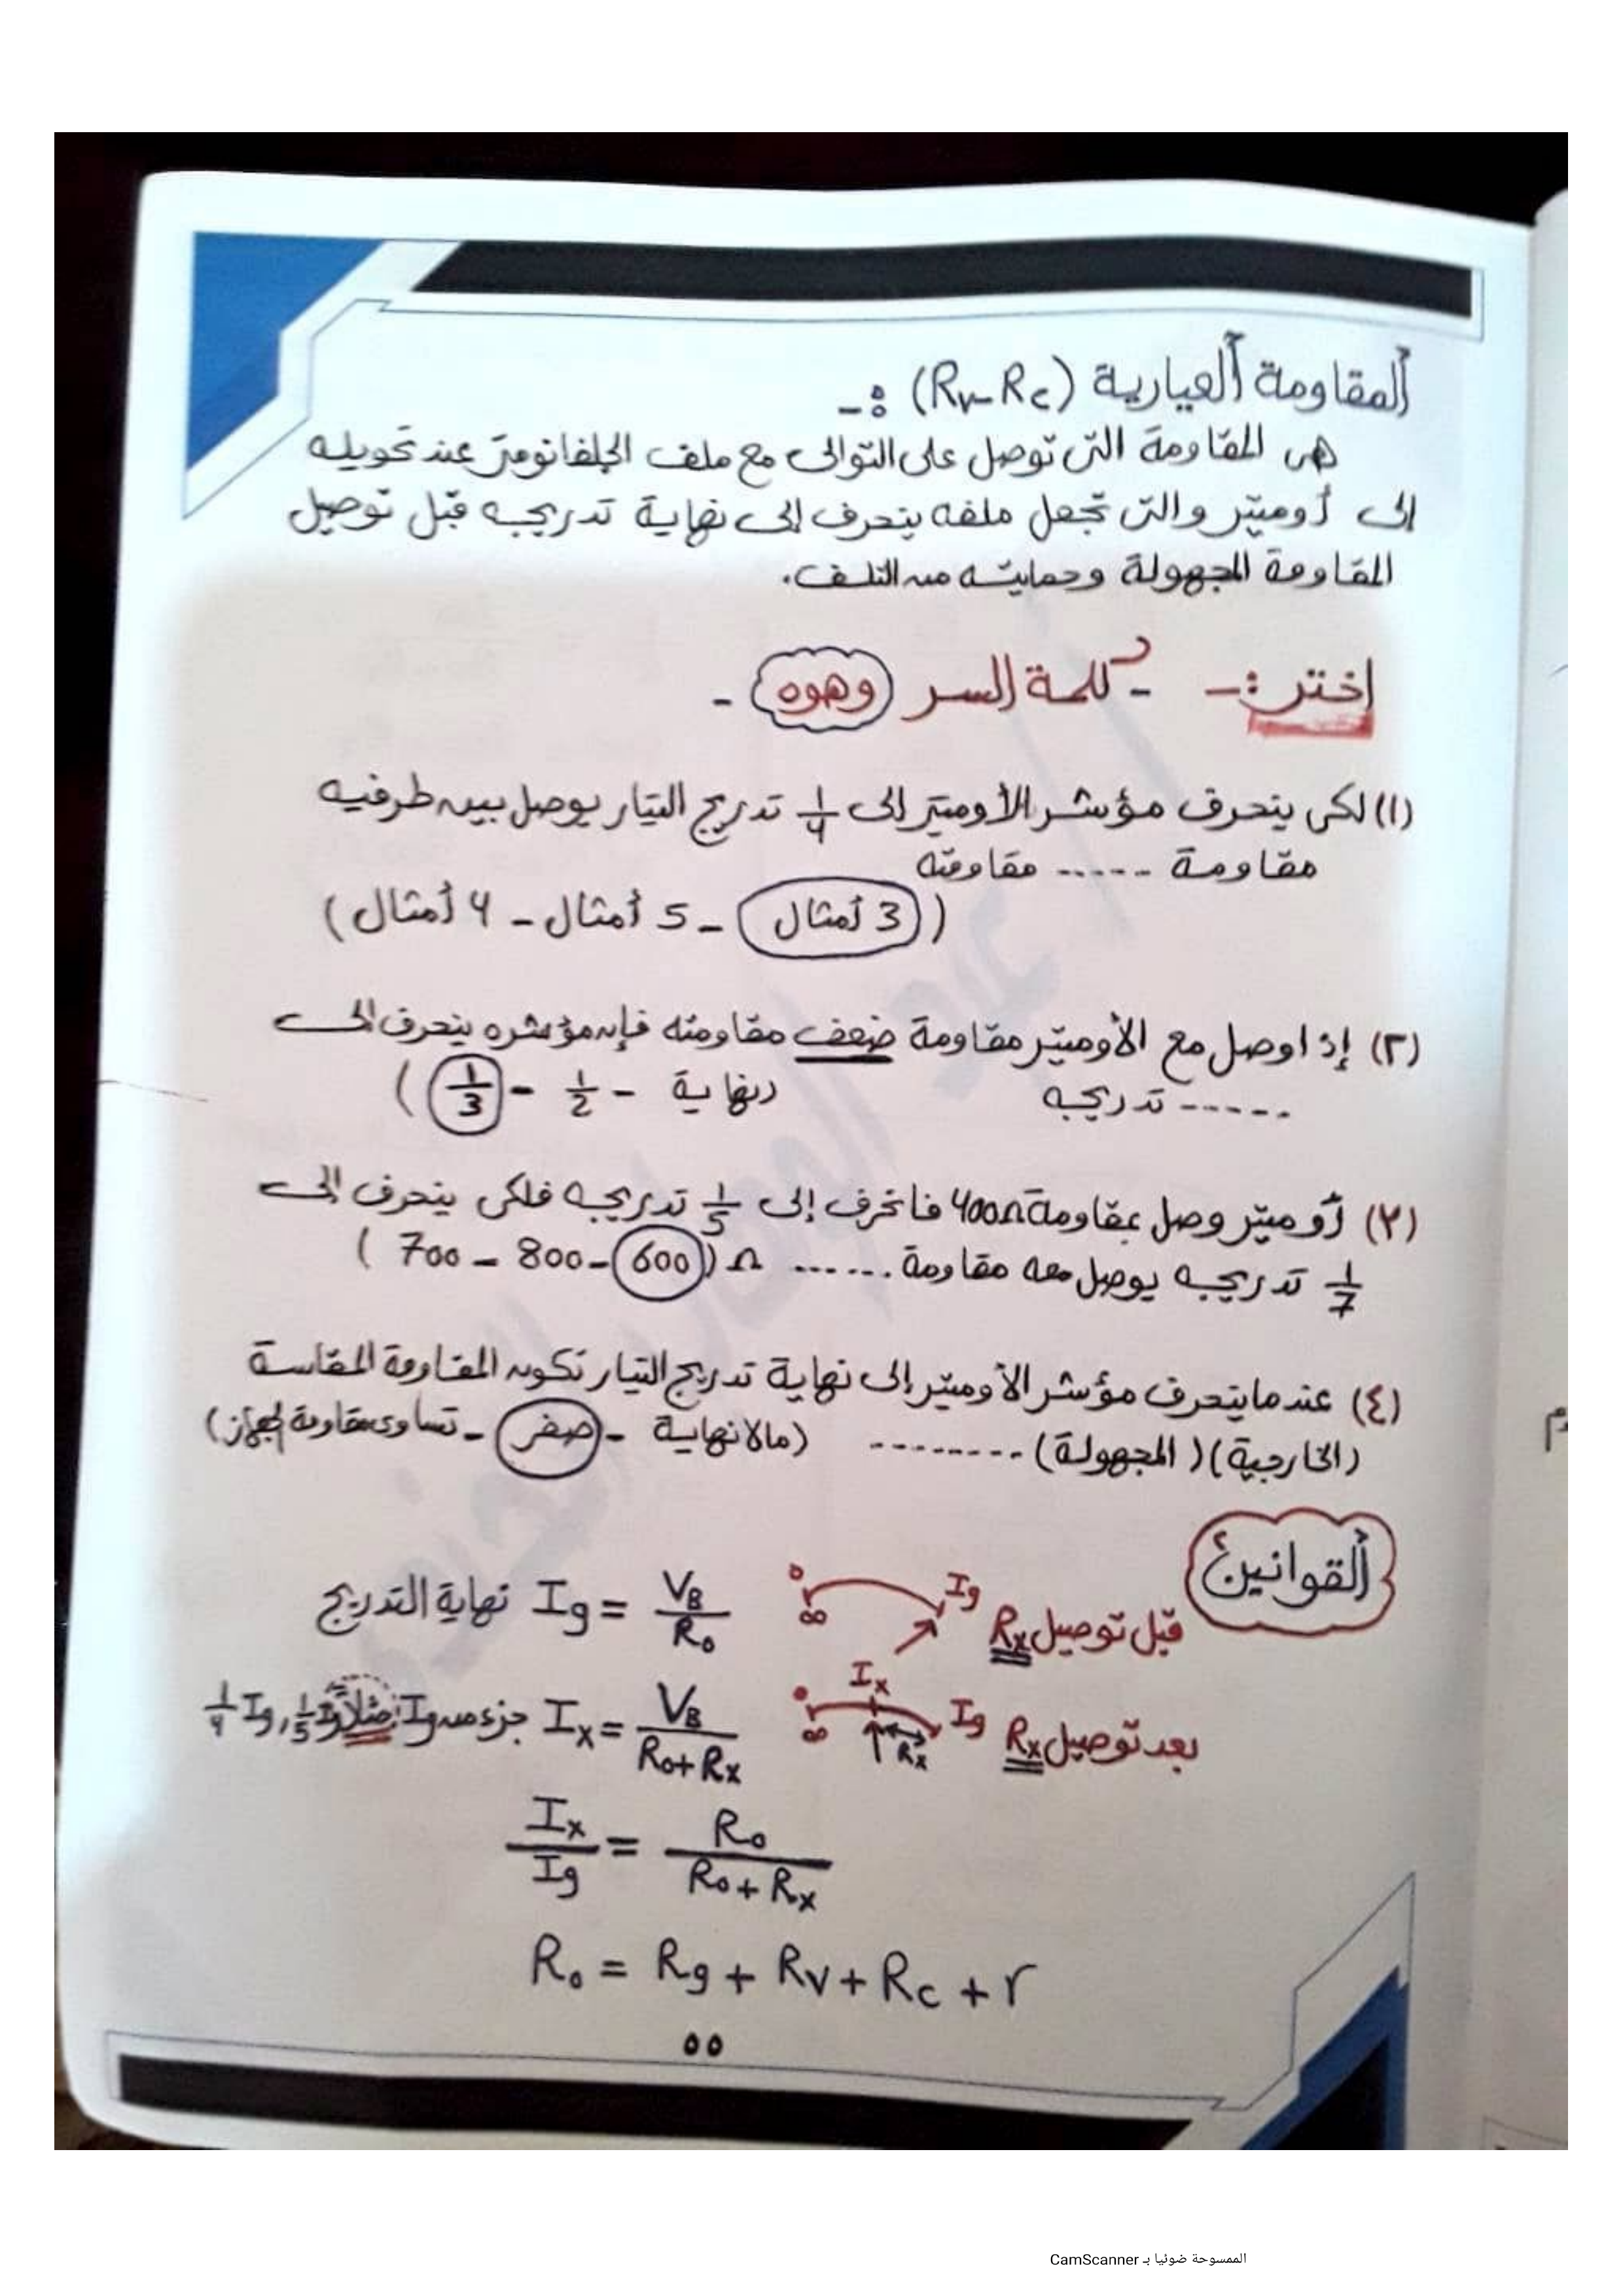 المقاومة العيارية (Rv-Rc) :-
هى المقاومة التى توصل على التوالى مع ملف الجلفانومتر عند تحويله
إلى أوميتر والتى تجعل ملفه ينحرف إلى نهاية تدريجه قبل توصيل
المقاومة المجهولة وحمايته من التلف.
إختر :- - كلمة السر (وهوه) -
(١) لكى ينحرف مؤشر الأوميتر إلى 1/4 تدريج التيار يوصل بين طرفيه
مقاومة ...... مقاومته
(3 أمثال - 5 أمثال - 4 أمثال)
(٢) إذا وصل مع الأوميتر مقاومة ضعف مقاومته فإن مؤشره ينحرف إلى
...... تدريجه (نهاية - 1/2 - 1/3)
(٣) أوميتر وصل بمقاومة 400Ω فانحرف إلى 1/5 تدريجه فلكى ينحرف إلى
1/7 تدريجه يوصل معه مقاومة ...... Ω (600 - 800 - 700)
(٤) عندما ينحرف مؤشر الأوميتر إلى نهاية تدريج التيار تكون المقاومة المقاسة
(الخارجية) (المجهولة) ........ (مالانهاية - صفر - تساوى مقاومة الجهاز)
القوانين
قبل توصيل Rx 0 ∞ Ig Ig = VB/R0 نهاية التدريج
بعد توصيل Rx 0 ∞ Ix Ig Rx Ix = VB/R0+Rx جزء من Ig مثلاً 1/5 Ig, 1/4 Ig
Ix/Ig = R0/R0+Rx
R0 = Rg + Rv + Rc + r
٥٥
الممسوحة ضوئيا بـ CamScanner